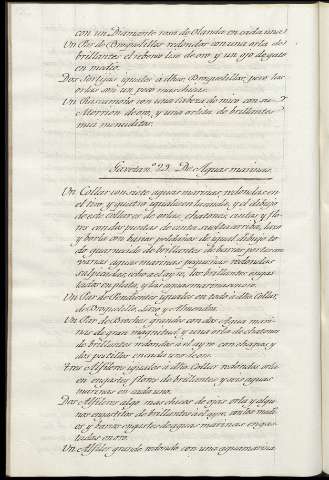 con un Diamante rosa de Olanda en cada uno
Un Par de Broquelillos redondos con una orla de
brillantes el reberso liso de oro y un ojo de gato
en medio.
Dos Sortijas iguales a dhos. Broquelillos, pero las
orlas son un poco mas chicas.
Un con una cabeza de mico con su
Morrion de oro, y una orlita de brillantes
mui menuditos.
Gaveta n.º 22. De Aguas marinas.
Un Collar con siete aguas marinas redondas en
el todo, y quatro iguales en
de este collar es de orlas, chatones, cintas y flo-
res con dos puntas de cinta sueltas arriba, lazo
y borla con varios del mismo dibujo, to-
do guarnecido de brillantes, de varios
varias aguas marinas pequeñas redondas
salpicadas, todo a el ayre, los brillantes engas-
tados en plata, y las aguas marinas en oro.
Un Par de Pendientes iguales en todo a dho. Collar,
de Broquelillo, Lazo y Almendra.
Un Par de Broches grandes con dos Aguas mari-
nas de gran magnitud, y una orla de chatones
de brillantes redondos a el ayre con chapas, y
dos pasadores en cada uno de oro.
Tres Alfileres iguales a dho. Collar redondos orla
en engastes, flores de brillantes y seis aguas
marinas en cada uno.
Dos Alfileres algo mas chicos de ojas orla y algu-
nos engastitos de brillantes a el ayre, con los medi-
os y varios engastes de aguas marinas engas-
tadas en oro.
Un Alfiler grande redondo con una agua marina